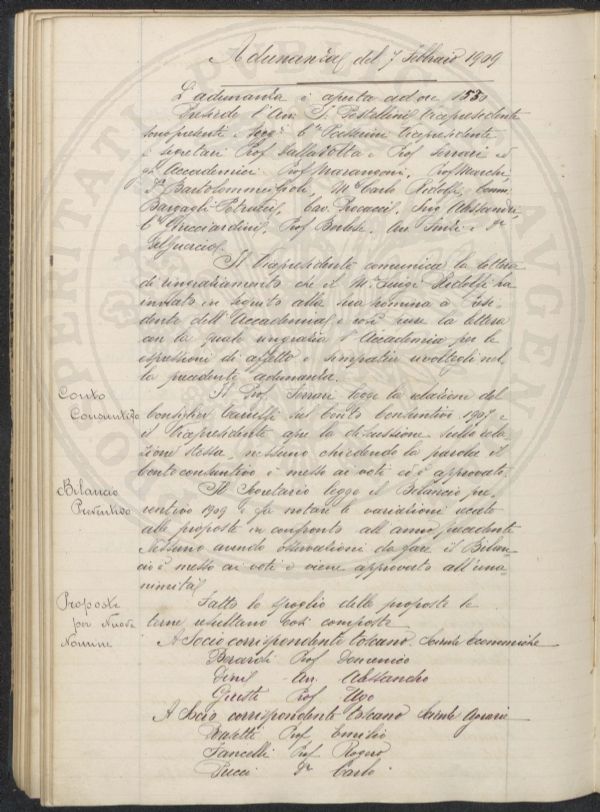 Adunanza del 7 Febbraio 1909
L'adunanza è aperta ad ore 15 30
Presiede l'Avv. Pestellini Vicepresidente
sono presenti i Sigg. Passerini Vicepresidente
i Segretari Prof. Dalla Volta e Prof. Ferrari ed
gli Accademici Prof Marangoni, Prof Marchi,
Dr Bartolommei Gioli, Me Carlo Ridolfi, Comm.
Barsagli Petrucci, Cav. Procacci, Alessandri,
Ce Guicciardini, Prof Bordiga, Avv e Dr
Del Guercio
Il Vicepresidente comunica la lettera
di ringraziamento che il Me Luigi Ridolfi ha
inviato in seguito alla sua nomina a Presi-
dente dell'Accademia e così pure la lettera
con la quale ringrazia l'Accademia per le
espressioni di affetto e simpatia rivoltegli nel
la precedente adunanza.
Conto
Consuntivo
Il Prof. Ferrari legge la relazione del
sul Conto Consuntivo 1908 e
il Vicepresidente apre la discussione sulla rela-
zione stessa, nessuno chiedendo la parola il
Conto consuntivo è messo ai voti ed è approvato
Bilancio
Preventivo
Il Segretario legge il Bilancio pre-
ventivo 1909 e fa notare le variazioni
alle proposte in confronto all'anno precedente
Nessuno avendo osservazioni da fare il Bilan-
cio è messo ai voti e viene approvato all'una-
nimità
Proposte
per Nuove
Nomine
Fatto lo spoglio delle proposte le
terne resultano così composte
A Socio corrispondente toscano Scienze Economiche
Berardi Prof Domenico
Dini Avv. Alessandro
Giusti Prof Ugo
A Socio corrispondente toscano Scienze Agrarie
Prof Emilio
Fancelli Prof Rogero
Pucci Dr Carlo